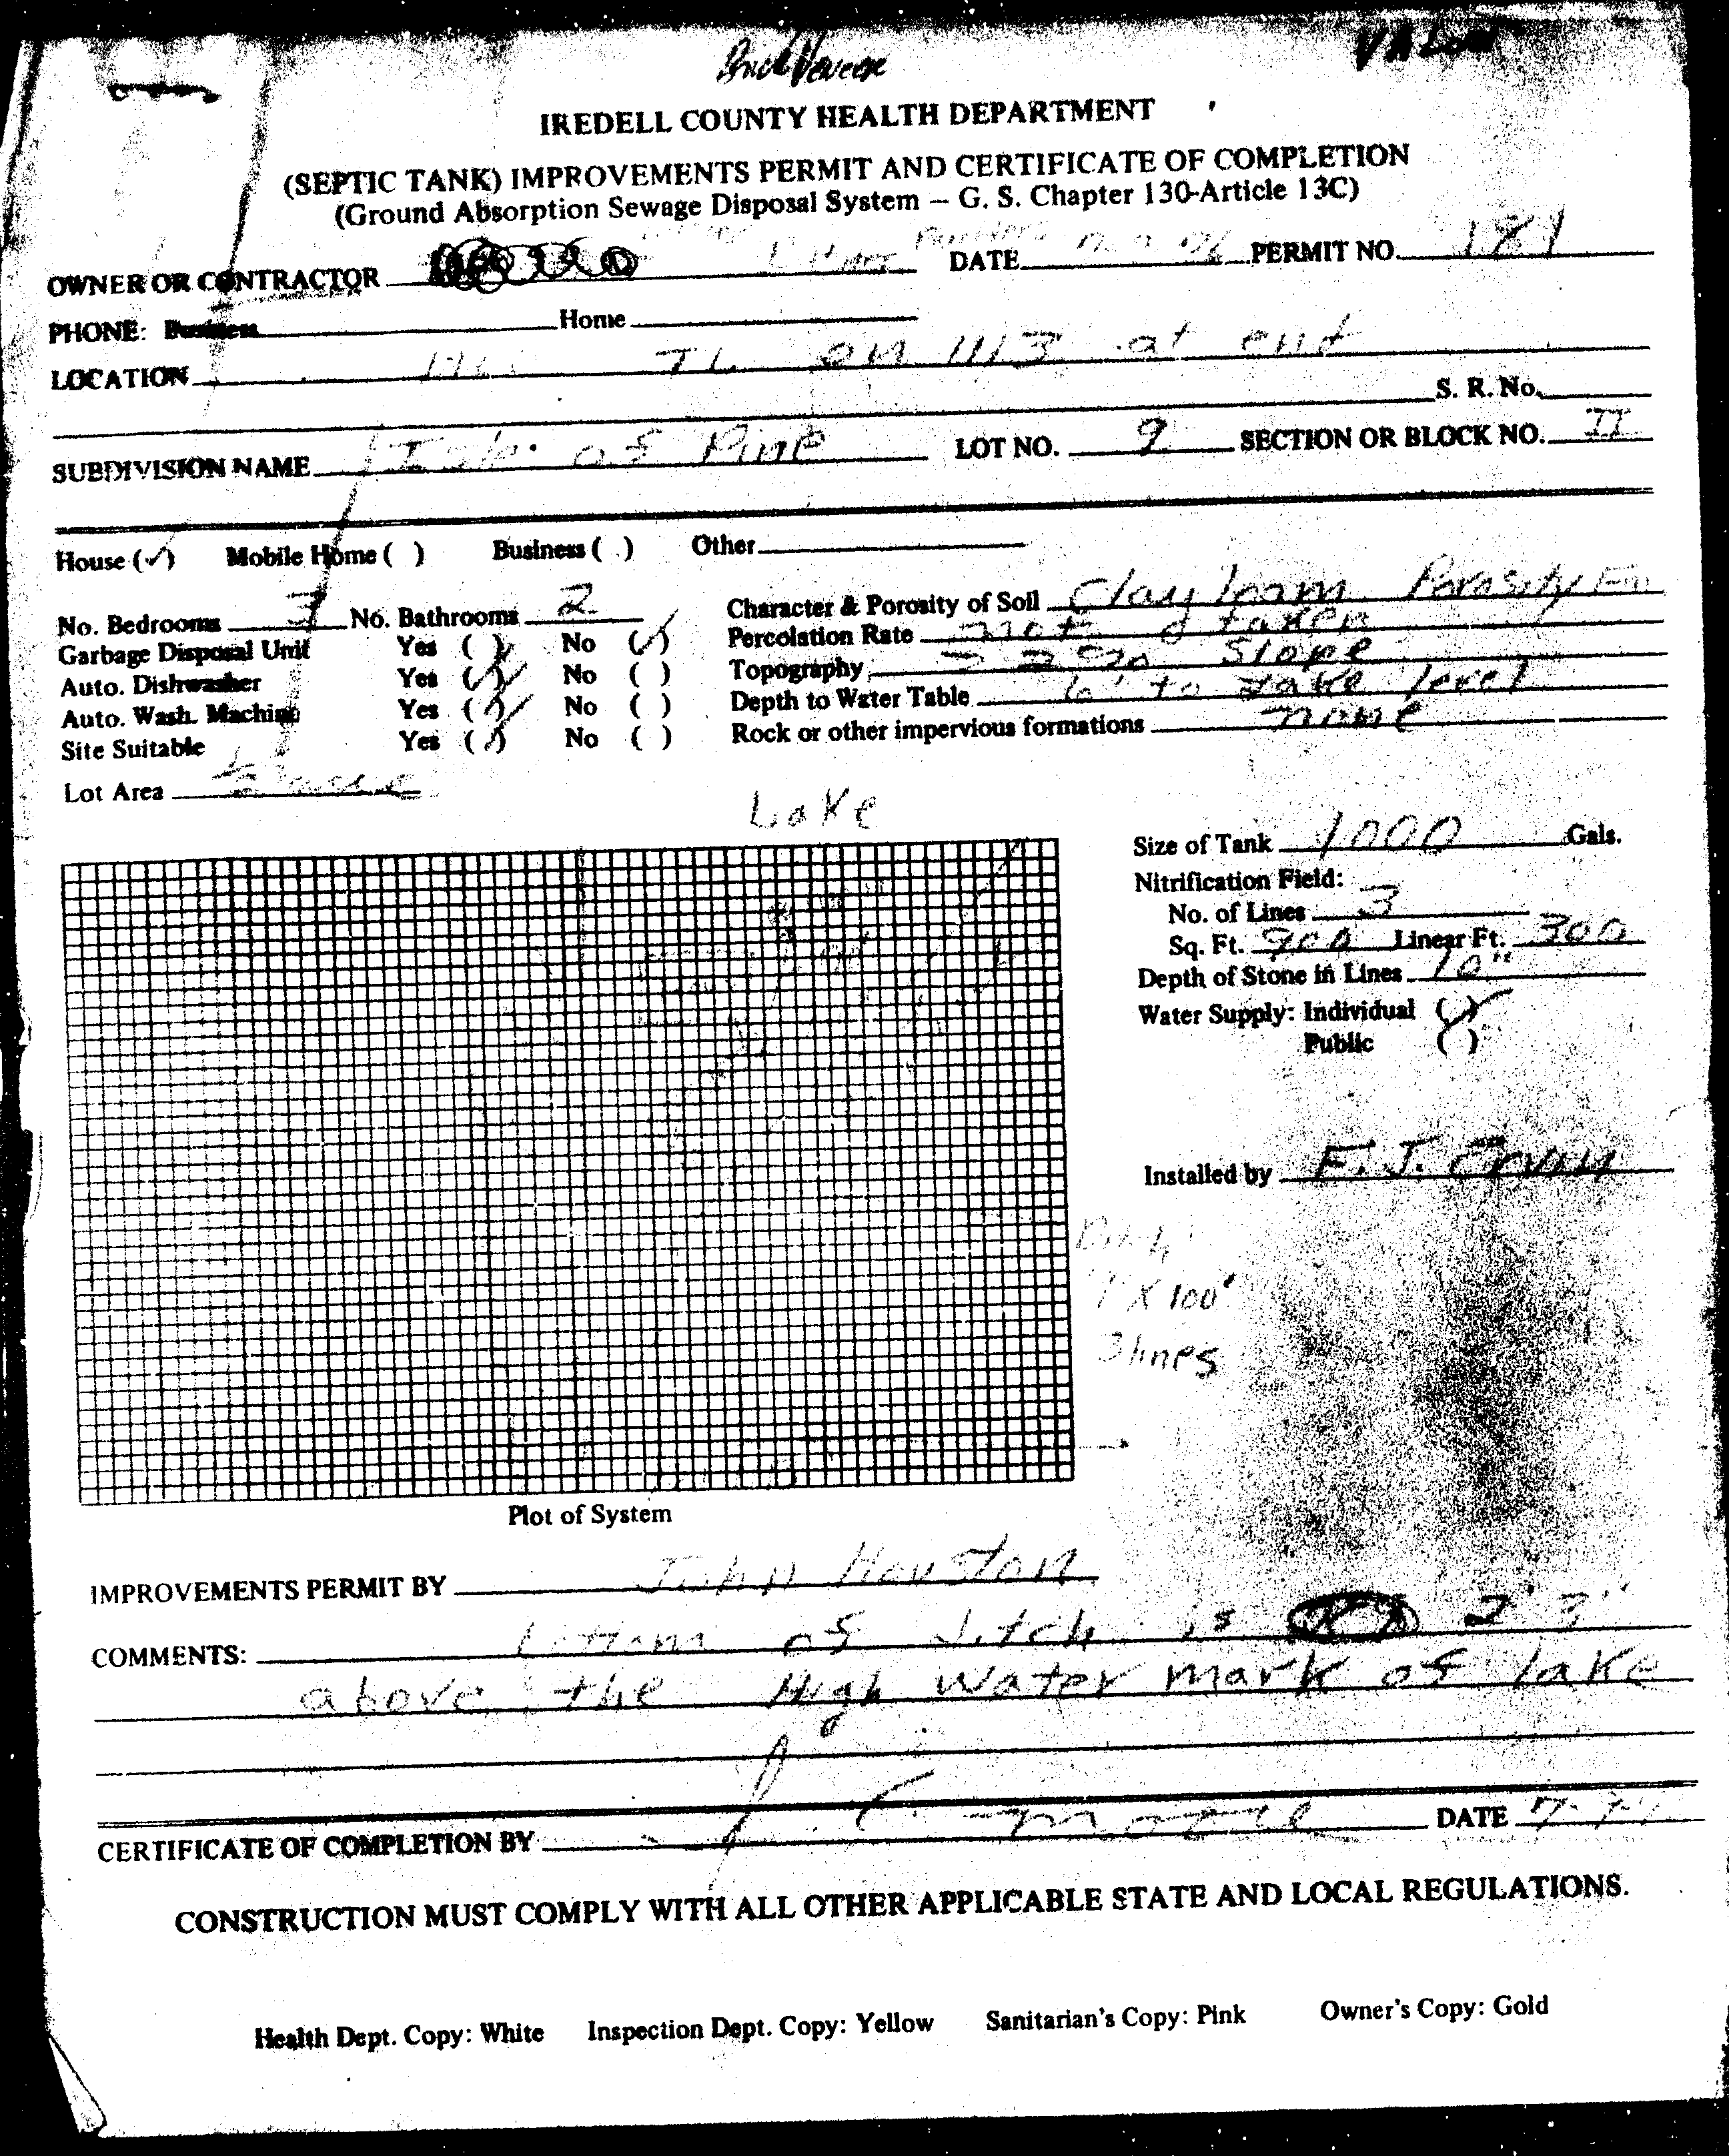 IREDELL COUNTY HEALTH DEPARTMENT
(SEPTIC TANK) IMPROVEMENTS PERMIT AND CERTIFICATE OF COMPLETION
(Ground Absorption Sewage Disposal System – G. S. Chapter 130-Article 13C)
OWNER OR CONTRACTOR DATE PERMIT NO. 181
PHONE: Business Home
LOCATION on 1113 at end
S. R. No.
SUBDIVISION NAME Isle of Pine LOT NO. 9 SECTION OR BLOCK NO. II
House (✓) Mobile Home ( ) Business ( ) Other
No. Bedrooms 3 No. Bathrooms 2 Character & Porosity of Soil Clay loam Porosity
Garbage Disposal Unit Yes ( ) No (✓) Percolation Rate not taken
Auto. Dishwasher Yes (✓) No ( ) Topography slope
Auto. Wash. Machine Yes (✓) No ( ) Depth to Water Table to lake level
Site Suitable Yes (✓) No ( ) Rock or other impervious formations none
Lot Area
Lake
Size of Tank 1000 Gals.
Nitrification Field:
No. of Lines 3
Sq. Ft. 900 Linear Ft. 300
Depth of Stone in Lines 10"
Water Supply: Individual (✓)
Public ( )
Installed by
X 100'
3 lines
Plot of System
IMPROVEMENTS PERMIT BY John Houston
COMMENTS: bottom of ditch is 2' 3"
above the High water mark of lake
CERTIFICATE OF COMPLETION BY DATE
CONSTRUCTION MUST COMPLY WITH ALL OTHER APPLICABLE STATE AND LOCAL REGULATIONS.
Health Dept. Copy: White Inspection Dept. Copy: Yellow Sanitarian's Copy: Pink Owner's Copy: Gold